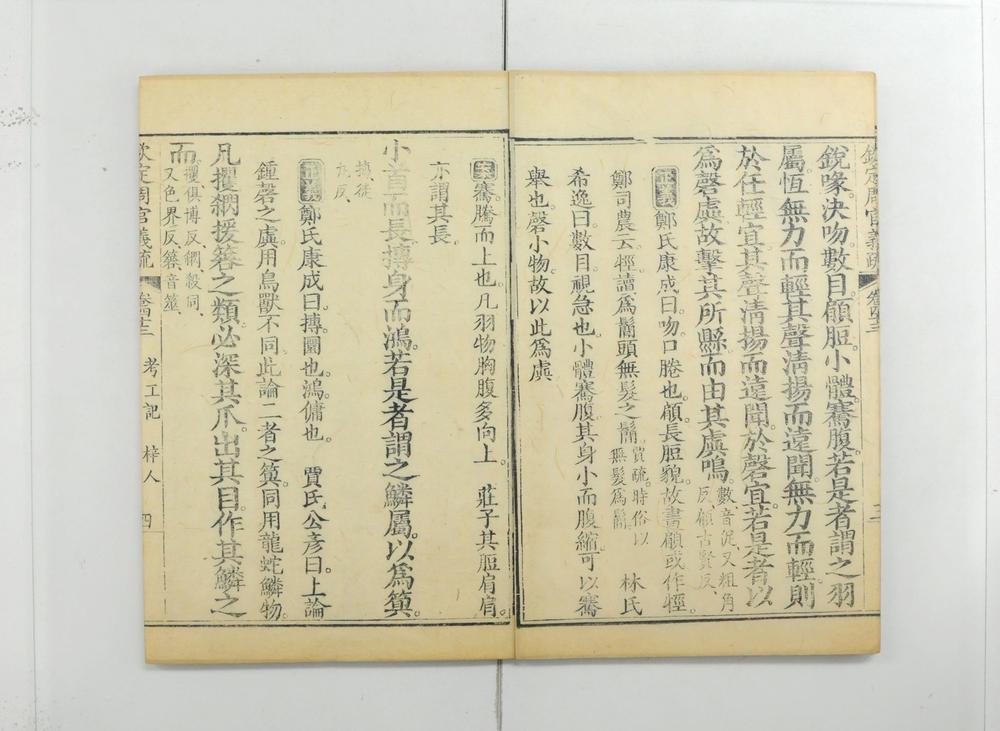 欽定周官義疏 卷四十三 三
銳喙決吻數目顅脰小體騫腹若是者謂之羽
屬恆無力而輕其聲清揚而遠聞無力而輕則
於任輕宜其聲清揚而遠聞於磬宜若是者以
爲磬虡故擊其所縣而由其虡鳴
數音促又粗角
反顅古賢反
正義 鄭氏康成曰吻口腃也顅長脰貌故書顅或作牼
鄭司農云牼讀爲鬜頭無髮之鬜
賈疏時俗以
無髮爲鬜
林氏
希逸曰數目視急也小體騫腹其身小而腹縮可以騫
舉也磬小物故以此爲虡
騫騰而上也凡羽物胸腹多向上 莊子其脰肩肩
亦謂其長
小首而長摶身而鴻若是者謂之鱗屬以爲筍
摶徒
九反
正義 鄭氏康成曰摶圜也鴻傭也 賈氏公彥曰上論
鍾磬之虡用鳥獸不同此論二者之筍同用龍蛇鱗物
凡攫閷援簭之類必深其爪出其目作其鱗之
而
攫俱博反閷殺同
又色界反簭音筮
欽定周官義疏 卷四十三 考工記 梓人 四